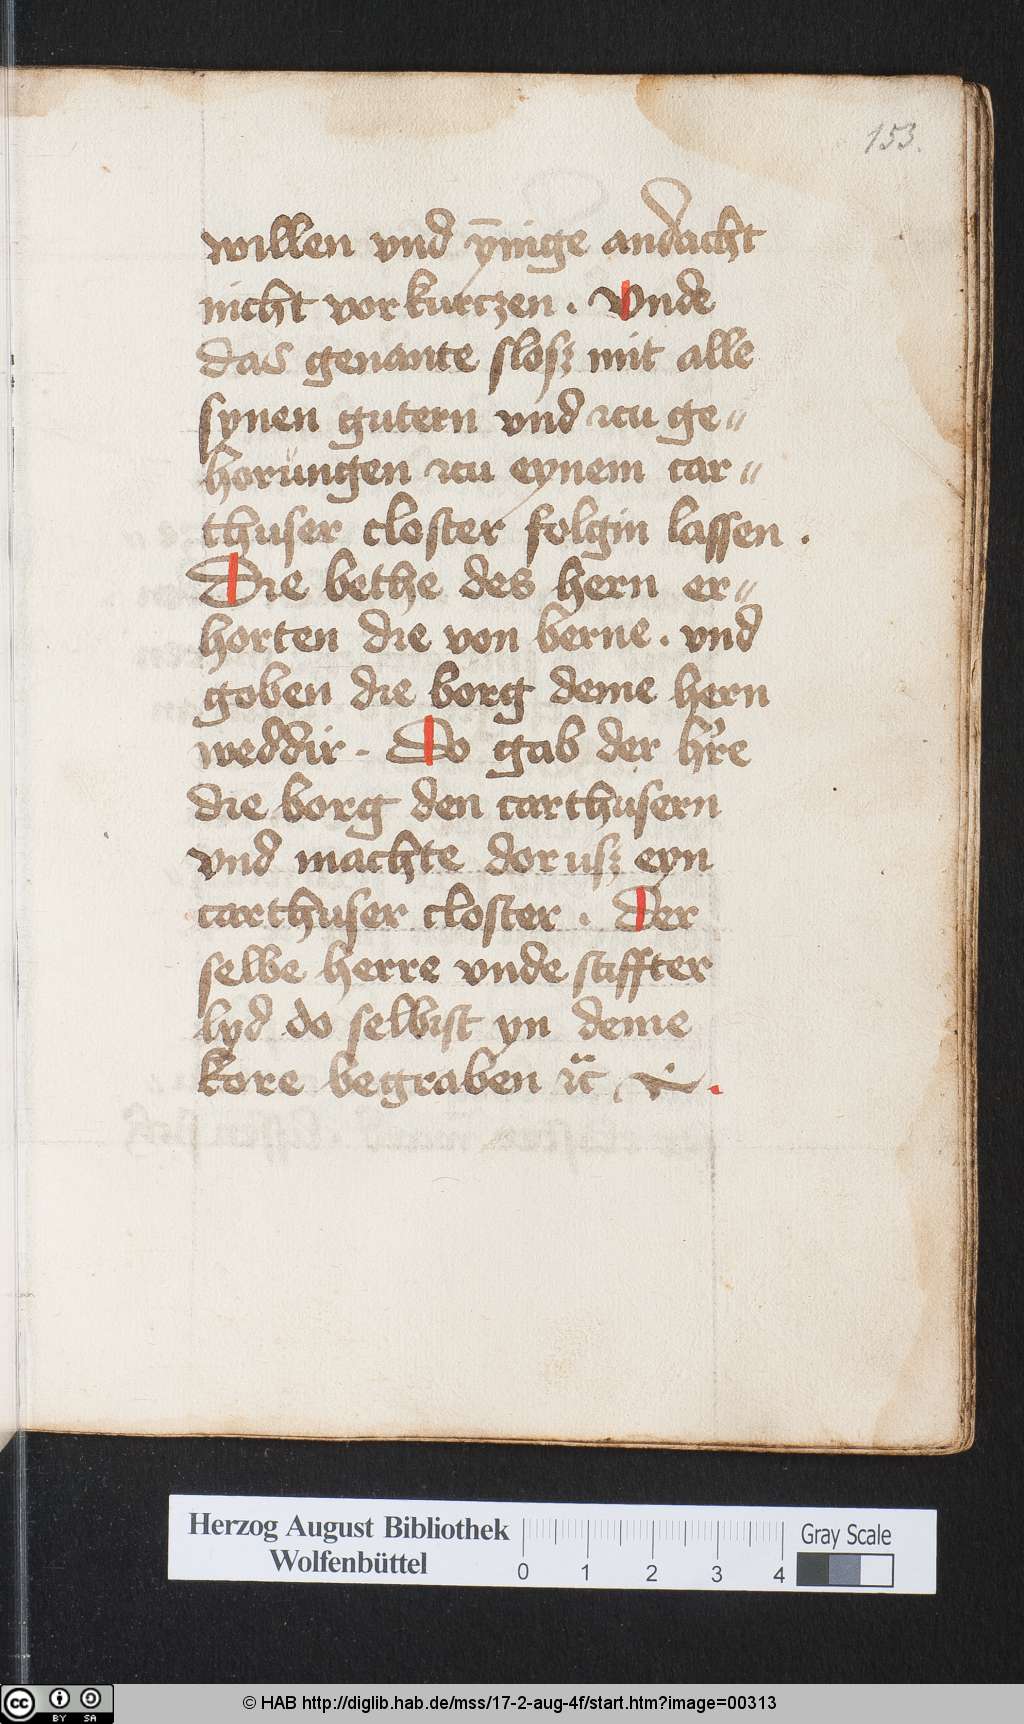 153.
willen vnd ȳnige andacht
nicht vorkurczen . Vnde
das genante slosz mit alle
synen gutern vnd zcu ge〃
horungen zcu eynem car〃
thuser closter folgin lassen .
Die bethe des hern er〃
horten die von berne . vnd
goben die borg deme hern
weddir . Do gab der h're
die borg den carthusern
vnd machte dor usz eyn
carthuser closter . Der
selbe herre vnde stiffter
lyd do selbist yn deme
kore begraben ꝛc
Herzog August Bibliothek
Wolfenbüttel
0 1 2 3 4
Gray Scale
cc BY SA
© HAB http://diglib.hab.de/mss/17-2-aug-4f/start.htm?image=00313